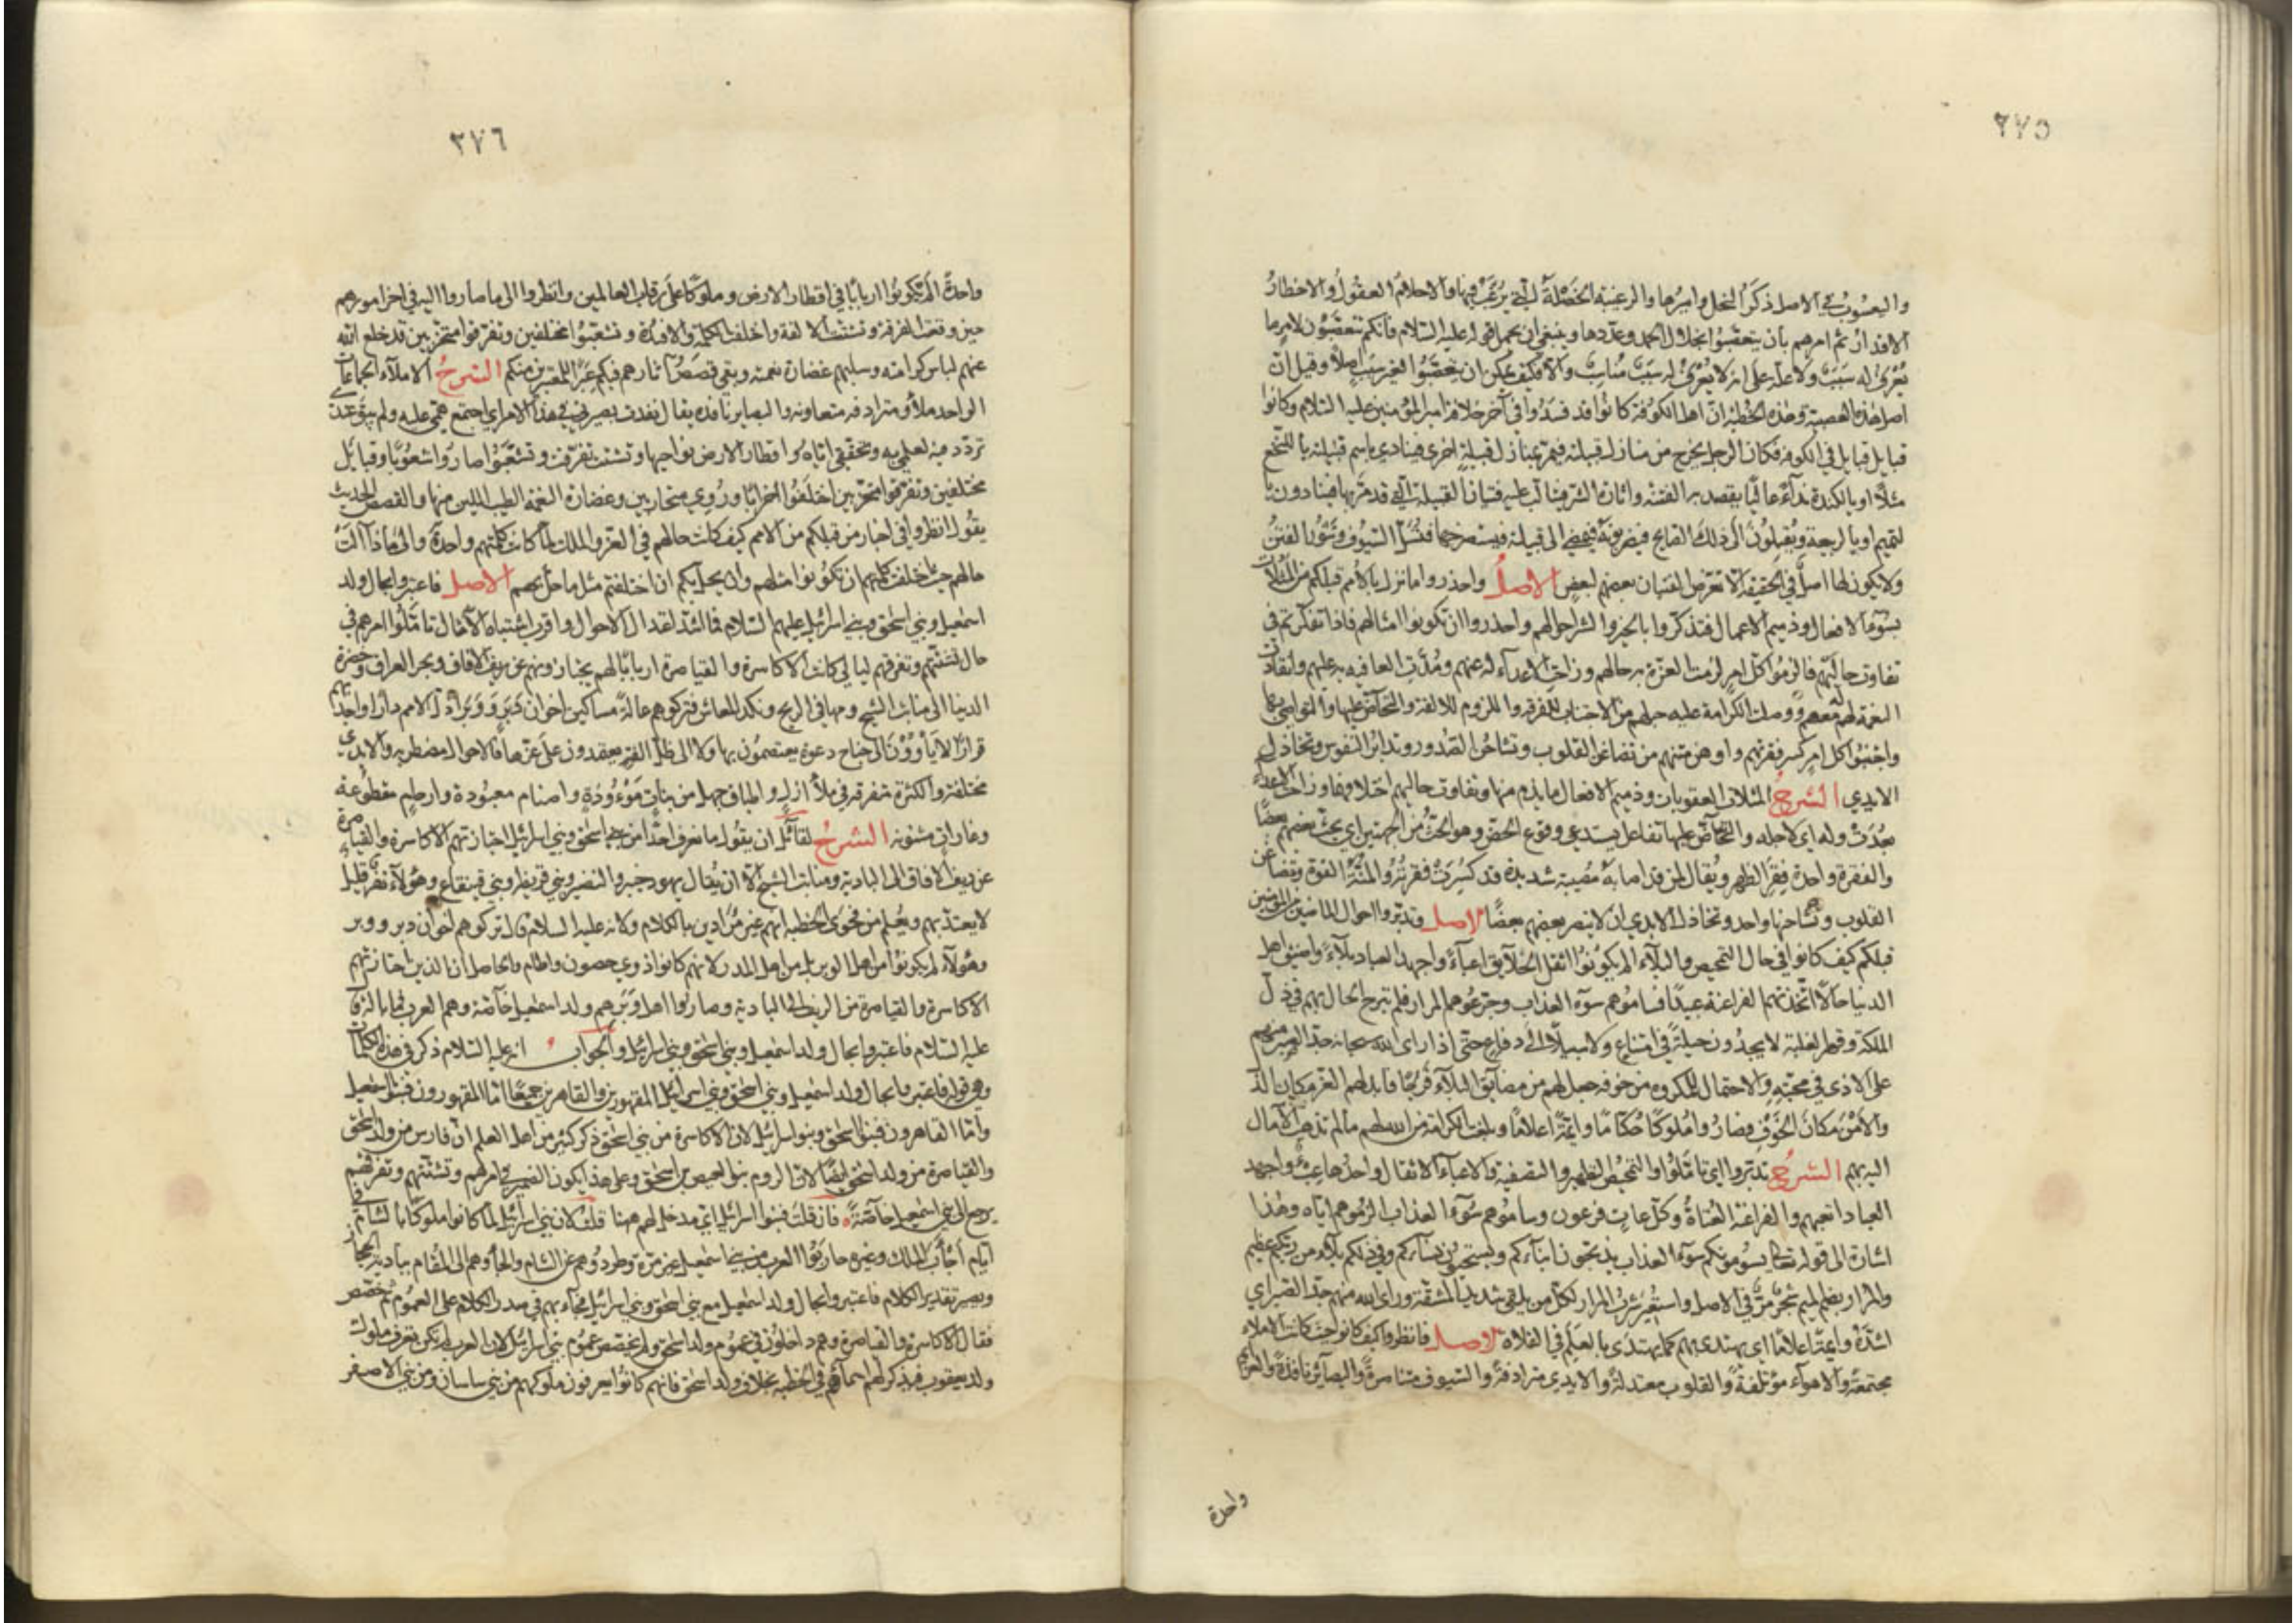 ٢٧٥
واليعسوب في الاصل ذكر النحل واميرها والرغيبة الخصلة التي يرغب فيها والاحلام العقول والاخطار
الاقدار ثم امرهم بأن يتعصبوا لخلال الحمد وعددها وينبغي ان يحمل قوله عليه السلام فانكم تتعصبون لامر ما
يعرف له سبب ولا علة على انه لا يعرف له سبب مناسب والا فكيف يمكن ان يتعصبوا لغير سبب اصلا وقيل ان
اصل هذه العصبية وهذه الخطبة ان اهل الكوفة كانوا قد فسدوا في آخر خلافة امير المؤمنين عليه السلام وكانوا
قبايل قبايل في الكوفة فكان الرجل يخرج من منازل قبيلته فيمر بمنازل قبيلة اخرى فينادي باسم قبيلته يا للنخع
مثلا او يا لكندة نداء عاليا يقصد به الفتنة واثارة الشر فيتألب عليه فتيان القبيلة التي قد مر بها فينادون يا
لتميم او يا لربيعة ويقبلون الى ذلك الصايح فيضربونه فيمضي الى قبيلته فيستصرخها فتسل السيوف وتثور الفتن
ولا يكون لها اصل في الحقيقة الا تعرض الفتيان بعضهم لبعض الاصل واحذروا ما نزل بالأمم قبلكم من المثلات
بسوء الافعال وذميم الاعمال فتذكروا بالخير والشر احوالهم واحذروا ان تكونوا امثالهم فاذا تفكرتم في
تفاوت حاليهم فالزموا كل امر لزمت العزة به حالهم وزاحت الاعداء له عنهم ومدت العافيه به عليهم وانقادت
النعمة له معهم ووصلت الكرامة عليه حبلهم من الاجتناب للفرقه واللزوم للالفة والتحاض عليها والتواصي بها
واجتنبوا كل امر كسر فقرتهم واوهن منتهم من تضاغن القلوب وتشاحن الصدور وتدابر النفوس وتخاذل
الايدي الشرح المثلات العقوبات وذميم الافعال ما يذم منها وتفاوت حاليهم اختلافهما وزاحت الاعداء
بعدت وله اي لاجله والتحاض عليها تفاعل يستدعي وقوع الحض وهو الحث من الجهتين اي يحث بعضهم بعضا
والفقرة واحدة فقر الظهر ويقال لمن قد اصابته مصيبة شديدة قد كسرت فقرته والمنة القوة وتضاغن
القلوب وتشاحنها واحد وتخاذل الايدي ان لا ينصر بعضهم بعضا الاصل وتدبروا احوال الماضين من المؤمنين
قبلكم كيف كانوا في حال التمحيص والبلاء الم يكونوا اثقل الخلايق اعباء واجهد العباد بلاء واضيق اهل
الدنيا حالا اتخذتهم الفراعنة عبيدا فساموهم سوء العذاب وجرعوهم المرار فلم تبرح الحال بهم في ذل
الهلكة وقهر الغلبة لا يجدون حيلة في امتناع ولا سبيلا الى دفاع حتى اذا راى الله سبحانه جد الصبر منهم
على الاذى في محبته والاحتمال للمكروه من خوفه جعل لهم من مضايق البلاء فرجا فابدلهم العز مكان الذل
والامن مكان الخوف فصاروا ملوكا حكاما وايمة اعلاما وبلغت الكرامة من الله لهم ما لم تذهب الآمال
اليه بهم الشرح تدبروا اي تأملوا والتمحيص التطهير والتصفية والاعباء الاثقال واحدها عبء واجهد
العباد اتعبهم والفراعنة العتاة وكل عات فرعون وساموهم سوء العذاب الزموهم اياه وهذا
اشارة الى قوله تعالى يسومونكم سوء العذاب يذبحون ابناءكم ويستحيون نساءكم وفي ذلكم بلاء من ربكم عظيم
والمرار بضم الميم شجر مر في الاصل واستعير شرب المرار لكل من يلقى شديد المشقة وراى الله منهم جد الصبر اي
اشده وايمة اعلاما اي يهتدى بهم كما يهتدى بالعلم في الفلاة الاصل فانظروا كيف كانوا حيث كانت الاملاء
مجتمعة والاهواء مؤتلفة والقلوب معتدلة والايدي مترادفة والسيوف متناصرة والبصاير نافذة والعزايم
واحدة
٣٧٦
واحدة الم يكونوا اربابا في اقطار الارض وملوكا على رقاب العالمين وانظروا الى ما صاروا اليه في اخر امورهم
حين وقعت الفرقة وتشتت الالفة واختلفت الكلمة والافئدة وتشعبوا مختلفين وتفرقوا متحزبين قد خلع الله
عنهم لباس كرامته وسلبهم غضارة نعمته وبقي قصص آثارهم فيكم عبرا للمعتبرين منكم الشرح الاملاء الجماعات
الواحد ملأ ومترادفه متعاونه والبصاير نافذه يقال نفذت بصيرتي في هذا الامر اي اجتمع همي عليه ولم يبق عندي
تردد فيه لعلمي به وتحققي اياه واقطار الارض نواحيها وتشتت تفرقت وتشعبوا صاروا شعوبا وقبائل
مختلفين وتفرقوا متحزبين اختلفوا احزابا وروي متحاربين وغضارة النعمة الطيب اللين منها والقصص الحديث
يقول انظروا في اخبار من قبلكم من الامم كيف كانت حالهم في العز والملك لما كانت كلمتهم واحدة والى ماذا آلت
حالهم حين اختلفت كلمتهم ان تكونوا مثلهم وان يحل بكم ان اختلفتم مثل ما حل بهم الاصل فاعتبروا بحال ولد
اسمعيل وبني اسحق وبني اسرائيل عليهم السلام فما اشد اعتدال الاحوال واقرب اشتباه الامثال تأملوا امرهم في
حال تشتتهم وتفرقهم ليالي كانت الاكاسرة والقياصرة اربابا لهم يجتازونهم عن ريف الافاق وبحر العراق وخضرة
الدنيا الى منابت الشيح ومهافي الريح ونكد المعاش فتركوهم عالة مساكين اخوان دبر ووبر اذل الامم دارا واجدبهم
قرارا لا يأوون الى جناح دعوة يعتصمون بها ولا الى ظل الفة يعتمدون على عزها فالاحوال مضطربه والايدي
مختلفة والكثرة متفرقه في بلاء ازل واطباق جهل من بنات موءودة واصنام معبودة وارحام مقطوعة
وغارات مشنونه الشرح لقائل ان يقول ما نعرف احدا من بني اسحق وبني اسرائيل اجتازتهم الاكاسرة والقياصرة
عن ريف الافاق الى البادية ومنابت الشيح الا ان يقال يهود خيبر والنضير وبني قريظة وبني قينقاع وهؤلاء نفر قليل
لا يعتد بهم ويعلم من فحوى الخطبة انهم غير مرادين بالكلام ولانه عليه السلام قال تركوهم اخوان دبر ووبر
وهؤلاء لم يكونوا من اهل الوبر بل من اهل المدر لانهم كانوا ذوي حصون واطام والحاصل ان الذين اجتازتهم
الاكاسرة والقياصرة من الريف الى البادية وصاروا اهل وبر هم ولد اسمعيل خاصة وهم العرب فما باله قال
عليه السلام فاعتبروا بحال ولد اسمعيل وبني اسحق وبني اسرائيل والجواب انه عليه السلام ذكر في هذه الكلمات
وهي قوله فاعتبروا بحال ولد اسمعيل وبني اسحق وبني اسرائيل المقهورين والقاهرين جميعا اما المقهورون فبنو اسمعيل
واما القاهرون فبنو اسحق وبنو اسرائيل لان الاكاسرة من بني اسحق ذكر كثير من اهل العلم ان فارس من ولد اسحق
والقياصرة من ولد اسحق ايضا لان الروم بنو العيص بن اسحق وعلى هذا يكون الضمير في امرهم وتشتتهم وتفرقهم
يرجع الى بني اسمعيل خاصة فان قلت فبنو اسرائيل اي مدخل لهم ههنا قلت لان بني اسرائيل لما كانوا ملوكا بالشام في
ايام أجأب الملك وغيره حاربوا العرب من بني اسمعيل غير مرة وطردوهم عن الشام والجأوهم الى المقام ببادية الحجاز
ويصير تقدير الكلام فاعتبروا بحال ولد اسمعيل مع بني اسحق وبني اسرائيل فجاء بهم في صدر الكلام على العموم ثم خصص
فقال الاكاسرة والقياصرة وهم داخلون في عموم ولد اسحق ولم يخصص عموم بني اسرائيل لان العرب لم تكن تعرف ملوك
ولد يعقوب فيذكر لهم اسماءهم في الخطبة بخلاف ولد اسحق فانهم كانوا يعرفون ملوكهم من بني ساسان ومن بني الاصفر